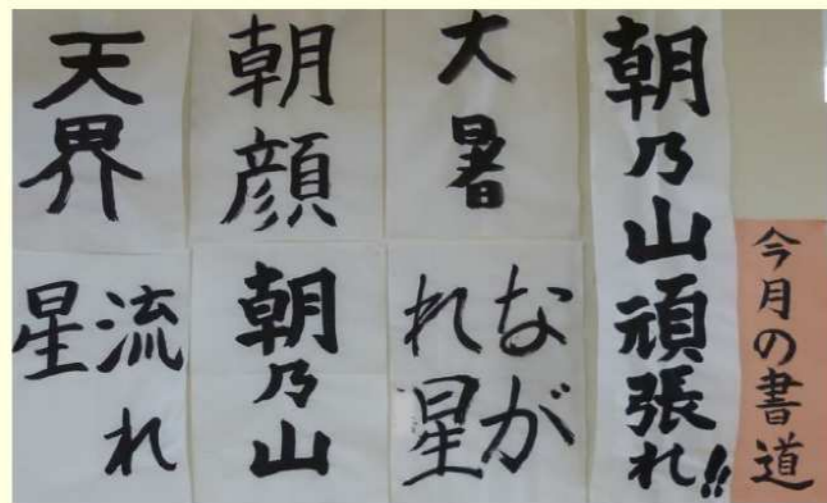 今月の書道
朝乃山頑張れ!!
大暑
ながれ星
朝顔
朝乃山
天界
流れ星